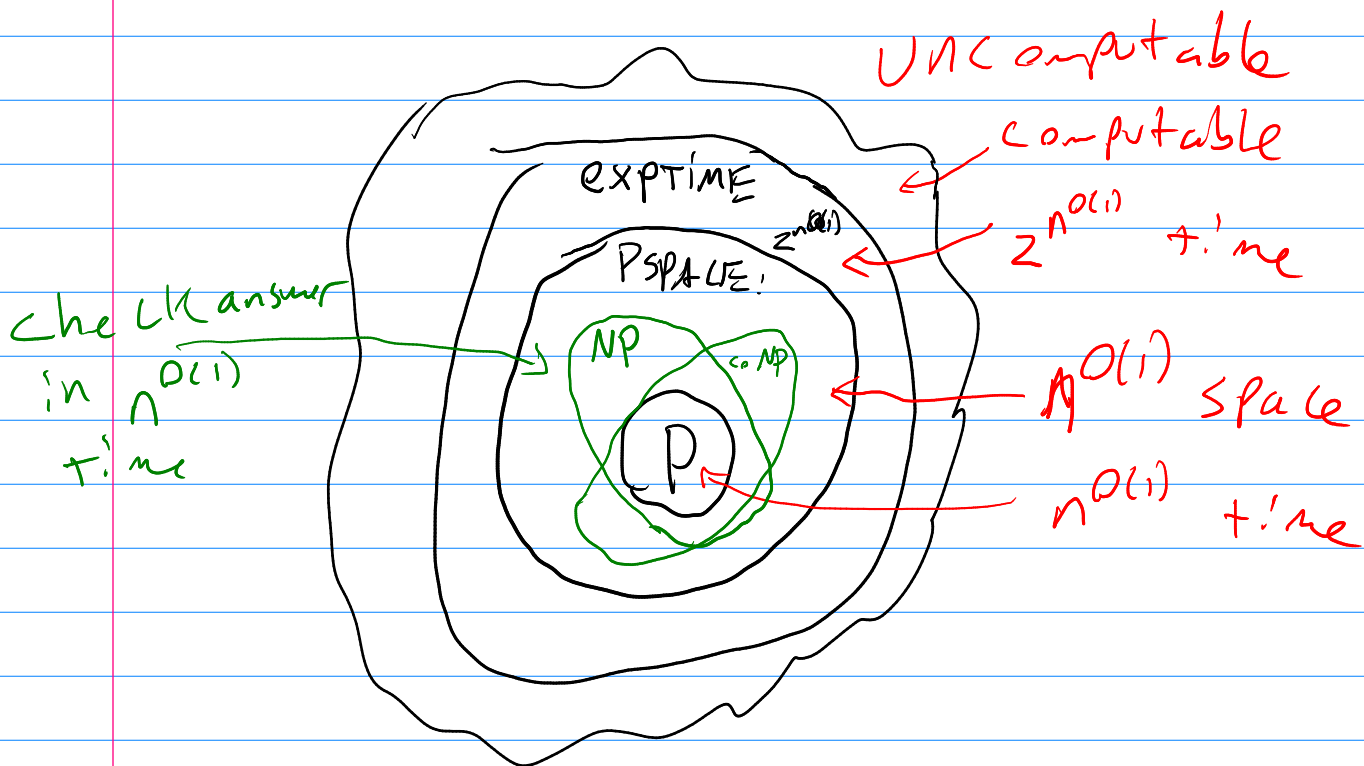 Uncomputable
computable
EXPTIME
2^n^O(1)
2^n^O(1) time
PSPACE
check answer
in n^O(1)
time
NP
coNP
n^O(1) space
P
n^O(1) time